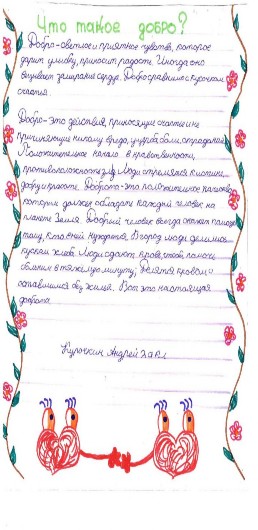 Что такое добро?
Добро-светлое и приятное чувство, которое
дарит улыбку, приносит радость. Иногда оно
вызывает замирание сердца. Добро сравнимо с кусочком
счастья.
Добро-это действия, приносящие счастье и не
причиняющие никому вреда, ущерба, боли, страдания
Положительное начало в нравственности,
противоположность злу. Люди стремятся к истине,
добру и красоте. Доброта-это положительное качество,
которым должен обладать каждый человек на
планете Земля. Добрый человек всегда окажет помощь
тому, кто в ней нуждается. В город люди делились
куском хлеба. Люди сдают кровь, чтоб помочь
больным в тяжелую минуту; Делятся кровом с
оставшимися без жилья. Вот это настоящая
доброта.
Курочкин Андрей 2а кл